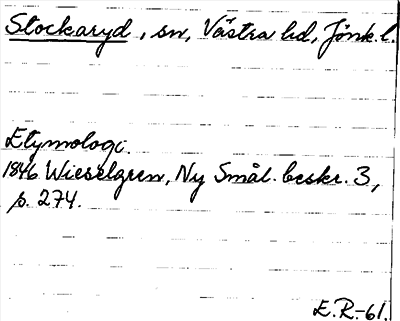 Stockaryd, sn, Västra hd, Jönk. l.
Etymologi.
1846. Wieselgren, Ny Smål. beskr. 3,
p. 274.
E.R.-61.